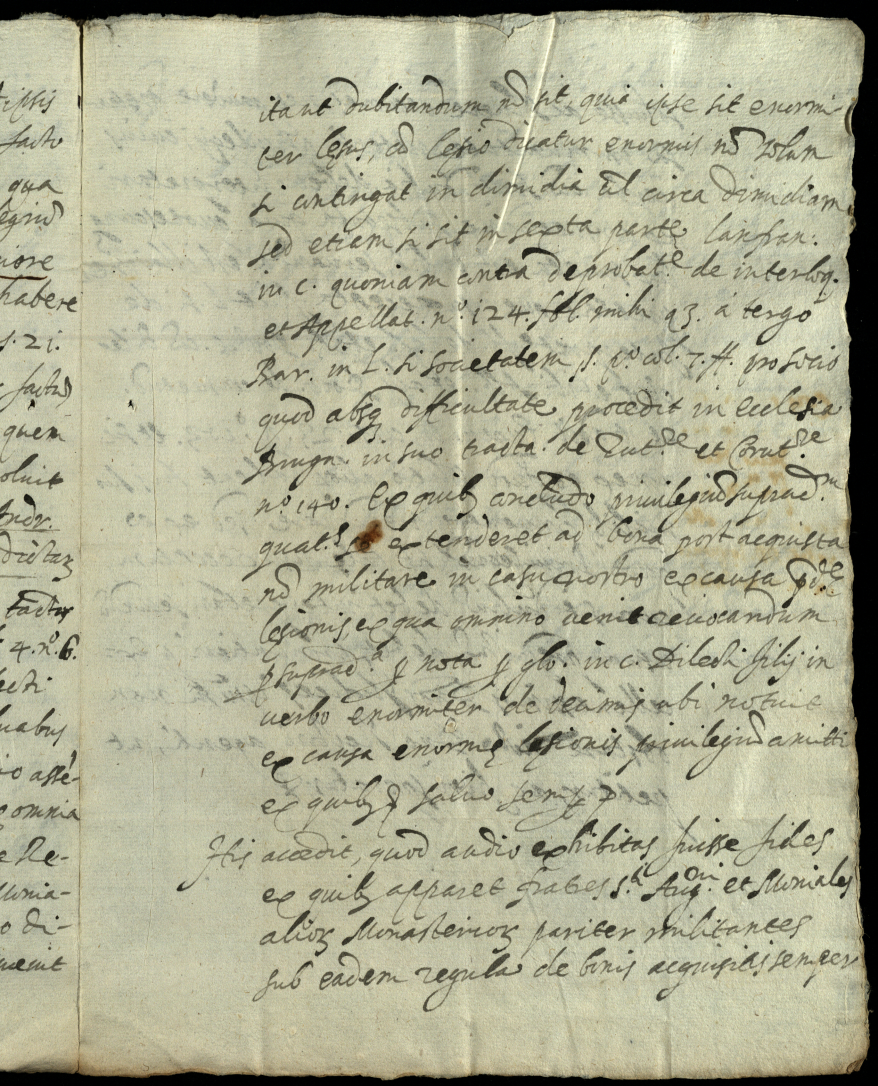 tipsis
facto
qua
egiũ
iore
habere
s. 21.
factũ
quem
oluit
Andr.
dictaꝝ
tactus
4. n.º 6.
lecti
uabus
io asse-
omnia
e Re-
Monia-
o di-
uenit
ita ut dubitandum nõ sit, quia ipse sit enormi-
ter lęsus, cũ lęsio dicatur enormis nõ solum
si contingat in dimidia ũl circa dimidiam
sed etiam si sit in sexta parte Lanfran:
in c. quoniam contra de probat.e de interloq.
et Appellat. n.º 124. fol. mihi 93. á tergo
Bar. in L. si societatem §. p.º col. 7. ff. pro socio
quod absq difficultate procedit in Ecclesia
Brugn. in suo tracta. de et
n.º 140. Ex quibꝫ concludo priuilegiũ suprad.m
quat.s se extenderet ad bona post acquista
nõ militare in casu nostro ex causa
lęsionis ex qua omnino uenit reuocandum
ꝑ suprad.a ꝑ nota ꝑ glo. in c. Dilecti filij in
uerbo enormiter de decimis ubi notuit
ex causa enormis lęsionis priuilegiũ amitti
ex quibꝫ salvo semp
His accedit, quod audio exhibitas fuisse fides
ex quibꝫ apparet fratres S.ti Aug.ni et Moniales
alioꝝ Monasterioꝝ pariter militantes
sub eadem regula de bonis acquisitis semper